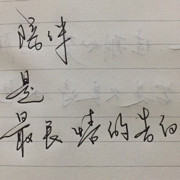 陪伴
是
最长情的告白